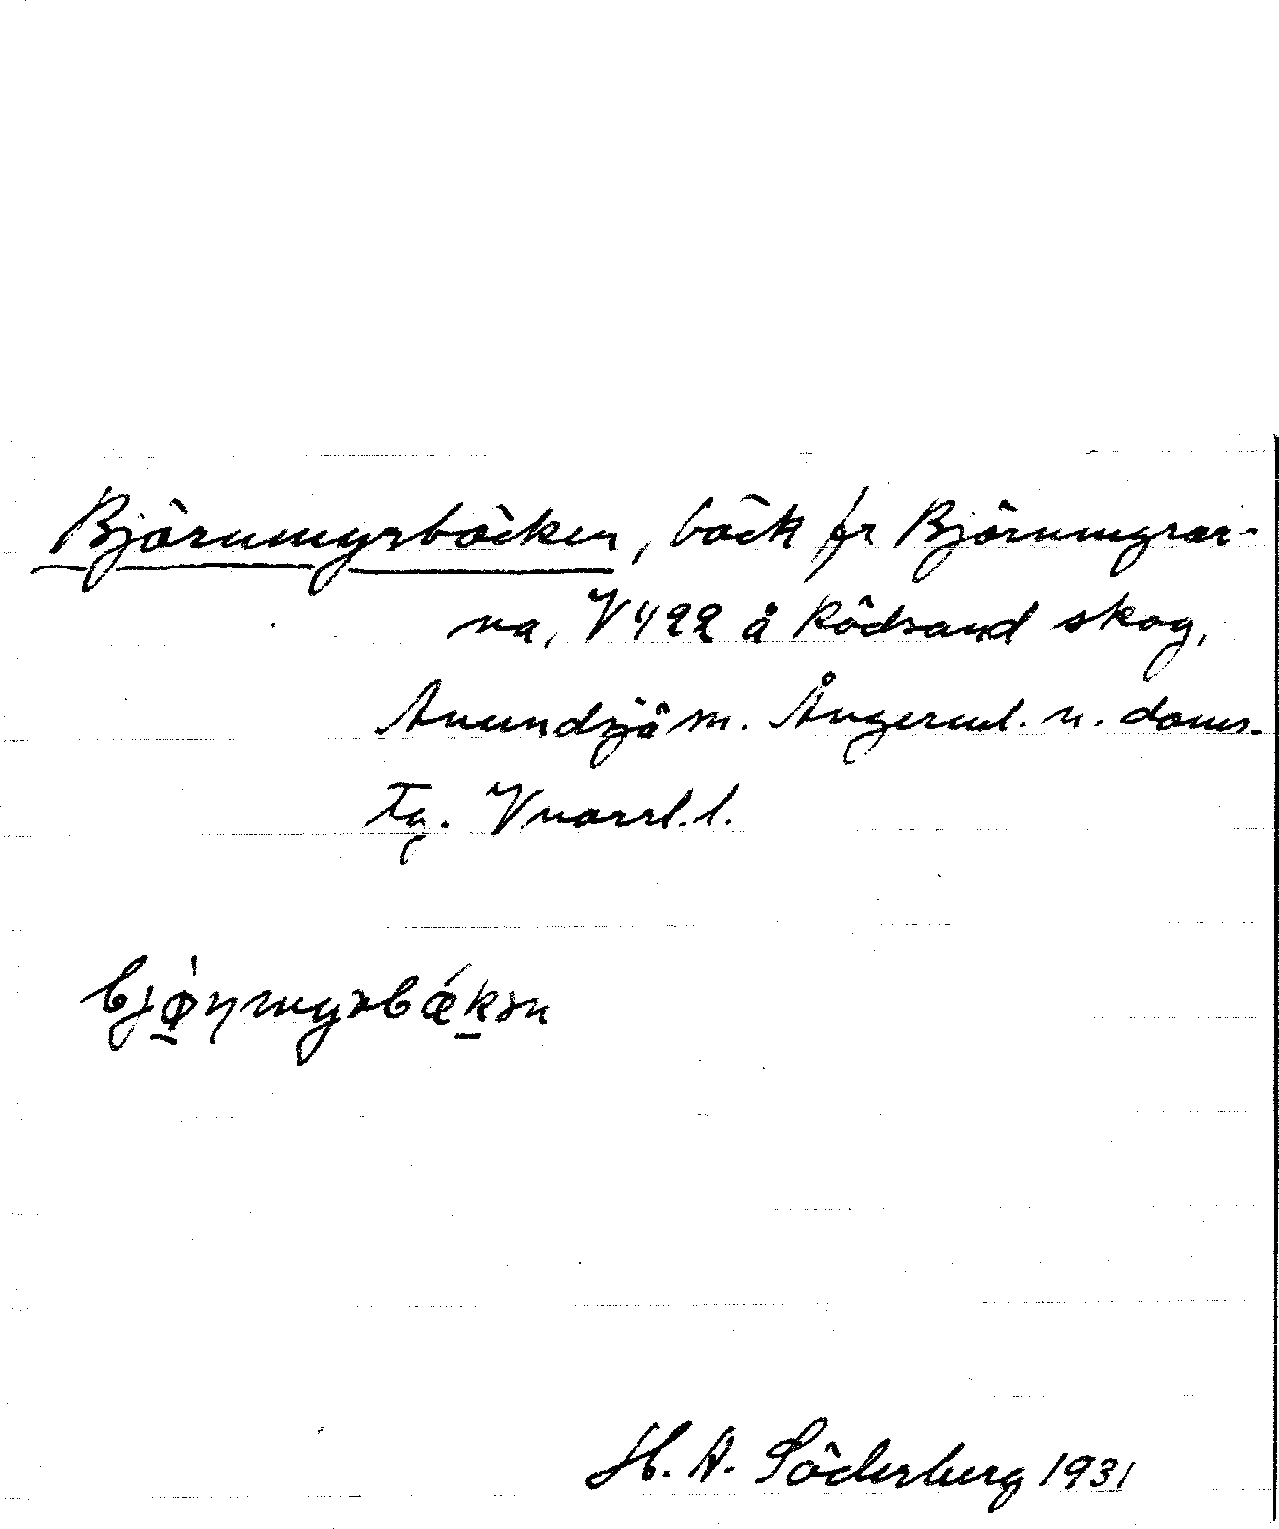 Björnmyrbäcken, bäck fr Björnmyrar-
na, V 422 å Rödsand skog,
Anundsjö sn. Ångerml. n. doms.
tg. Vnorrl. l.
H. A. Söderberg 1931